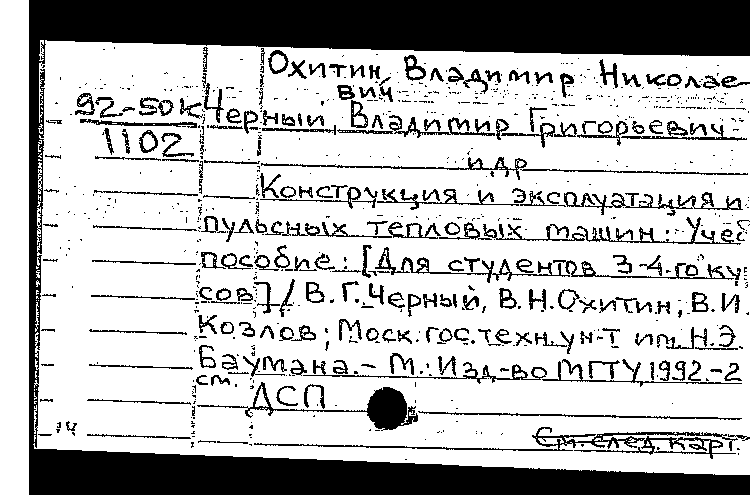 Охитин, Владимир Николае-
вич
92-50к Черный, Владимир Григорьевич
1102
и др
Конструкция и эксплуатация и
пульсных тепловых машин: Учеб
пособие: [Для студентов 3-4-го ку
сов] / В.Г.Черный, В.Н.Охитин, В.И.
Козлов; Моск.гос.техн.ун-т им. Н.Э.
Баумана.- М.: Изд-во МГТУ, 1992.-2
см.
ДСП
14
См. след. карт.